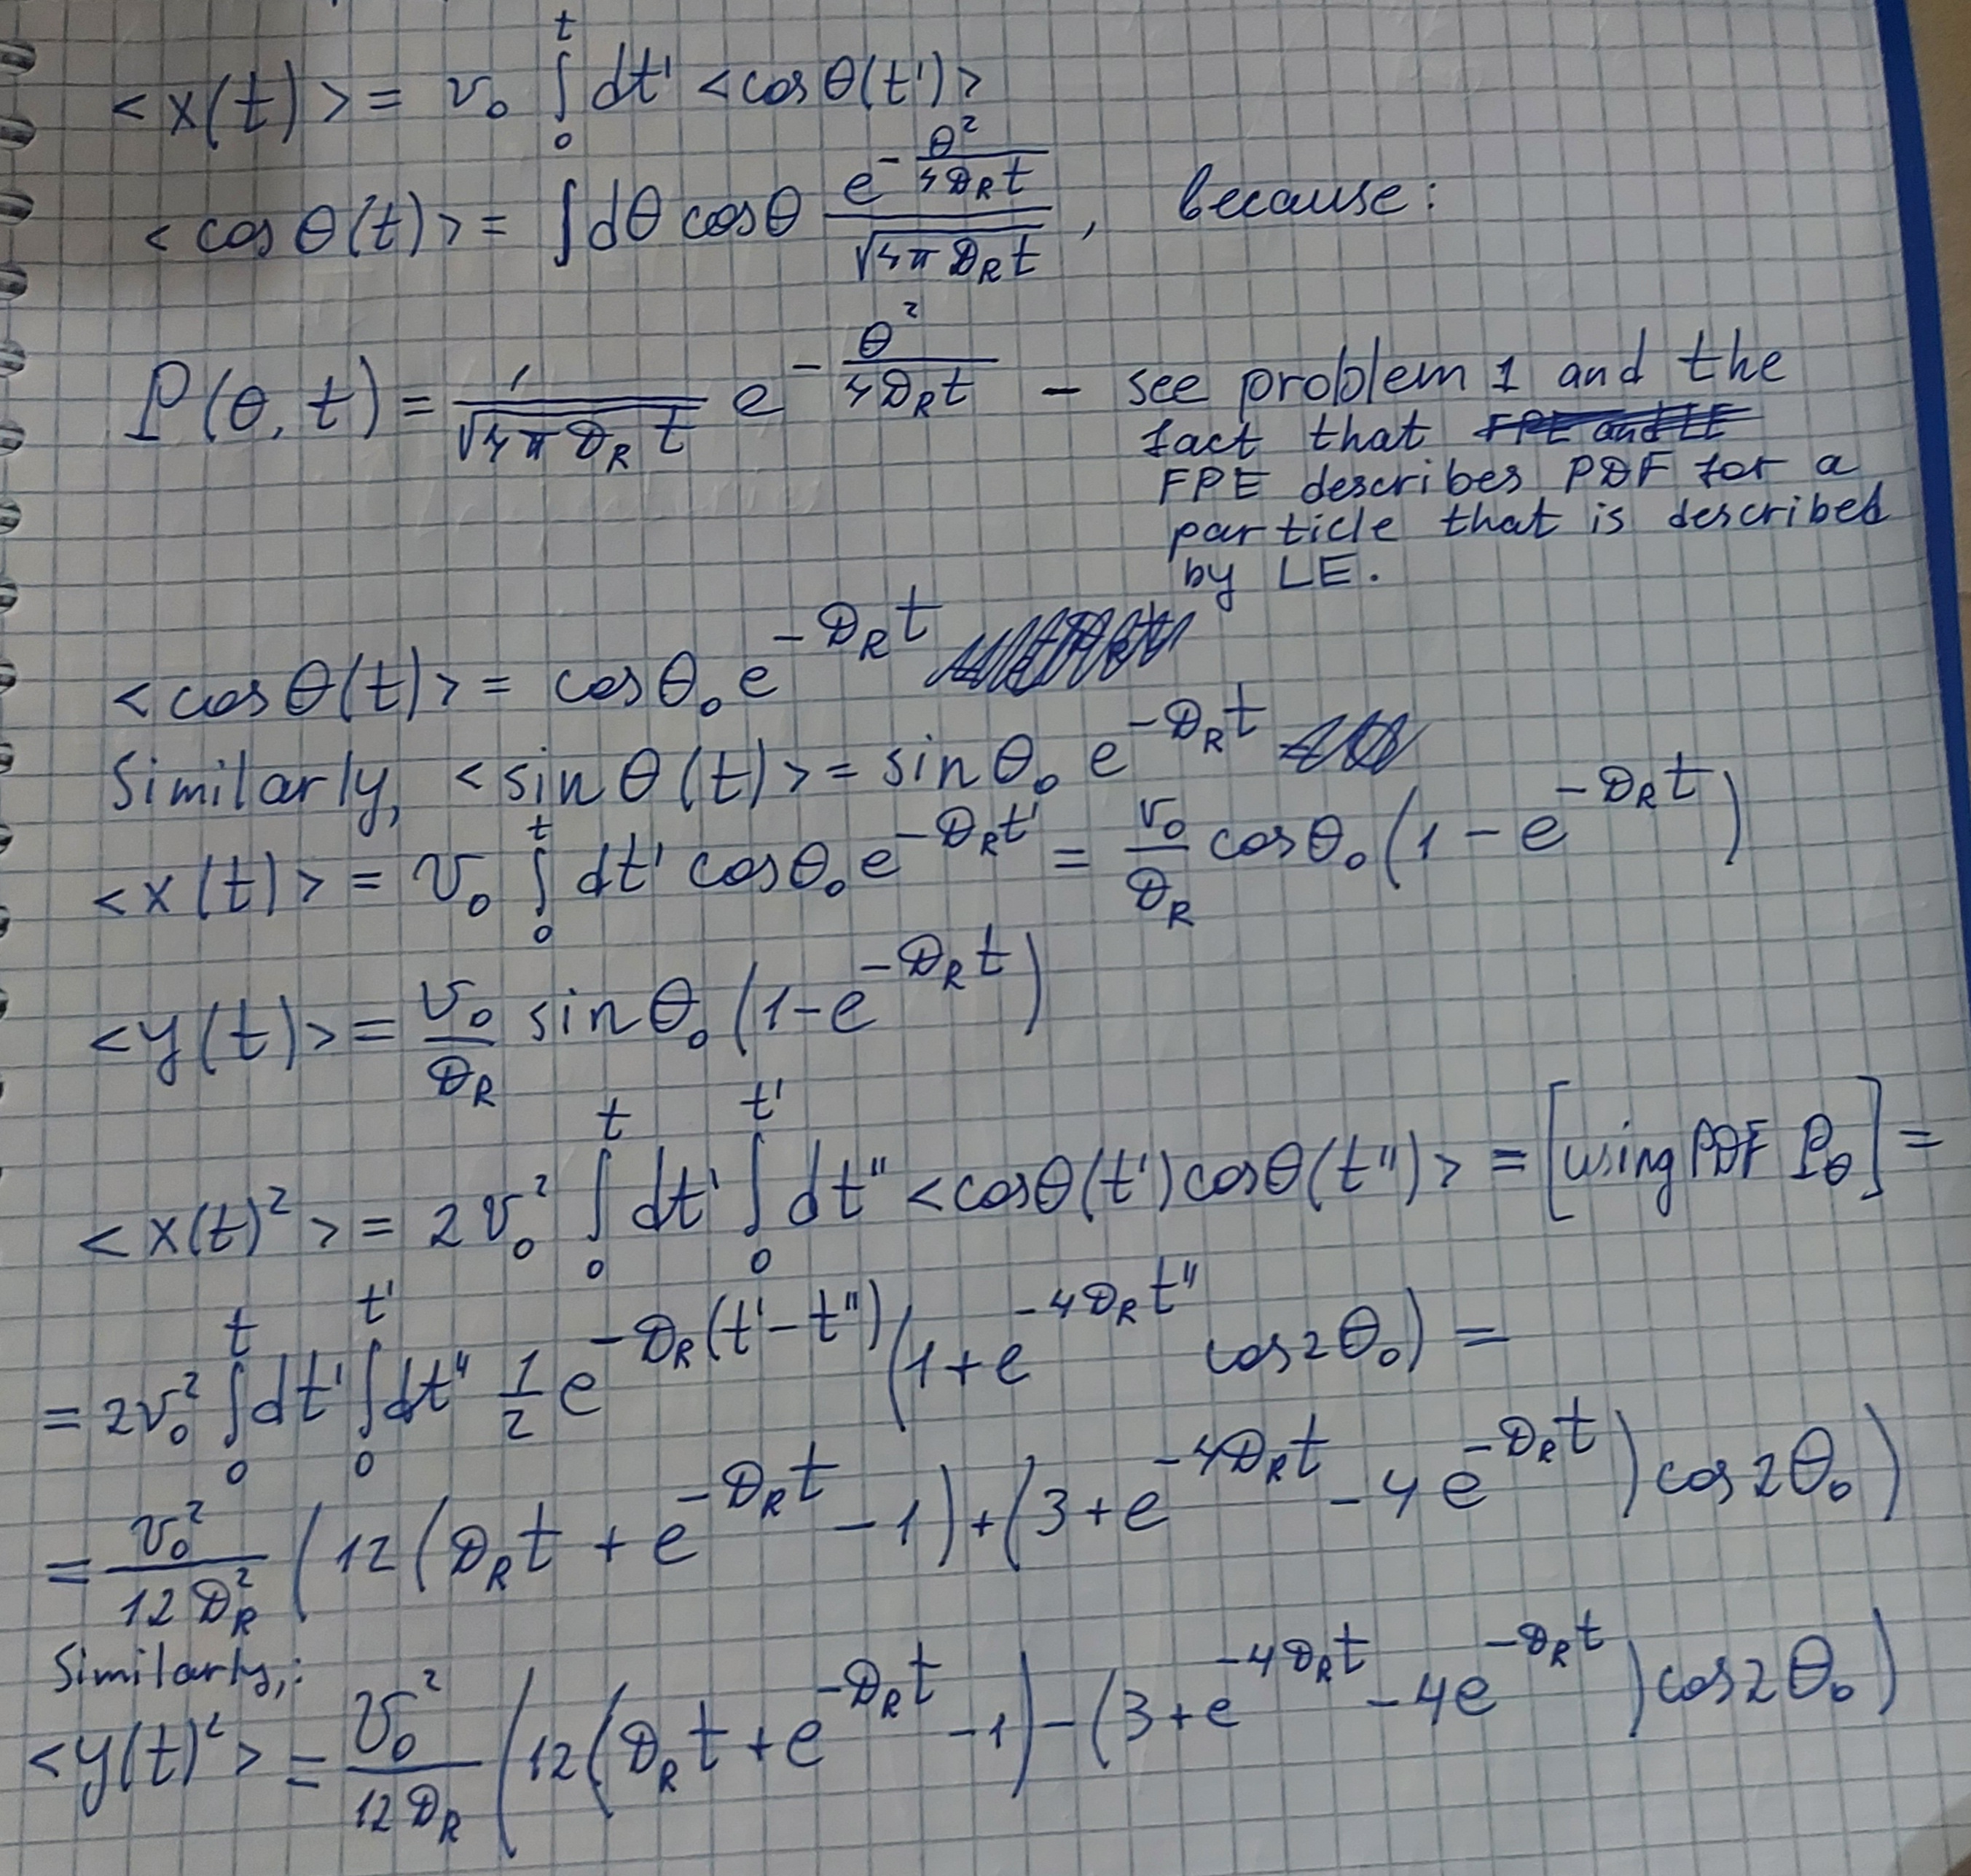 <x(t)> = v₀ ∫₀ᵗ dt' <cosθ(t')>
<cosθ(t)> = ∫dθ cosθ e^(-θ²/(4D_R t)) / √(4πD_R t), because:
P(θ, t) = 1/√(4πD_R t) e^(-θ²/(4D_R t)) – see problem 1 and the
fact that FPE and LE
FPE describes PDF for a
particle that is described
by LE.
<cosθ(t)> = cosθ₀ e^(-D_R t)
Similarly, <sinθ(t)> = sinθ₀ e^(-D_R t)
<x(t)> = v₀ ∫₀ᵗ dt' cosθ₀ e^(-D_R t') = v₀/D_R cosθ₀ (1 - e^(-D_R t))
<y(t)> = v₀/D_R sinθ₀ (1 - e^(-D_R t))
<x(t)²> = 2v₀² ∫₀ᵗ dt' ∫₀^t' dt'' <cosθ(t')cosθ(t'')> = [using PDF P_θ] =
= 2v₀² ∫₀ᵗ dt' ∫₀^t' dt'' 1/2 e^(-D_R(t'-t'')) (1 + e^(-4D_R t'') cos2θ₀) =
= v₀²/(12D_R²) (12(D_R t + e^(-D_R t) - 1) + (3 + e^(-4D_R t) - 4e^(-D_R t)) cos2θ₀)
Similarly,:
<y(t)²> = v₀²/(12D_R) (12(D_R t + e^(-D_R t) - 1) - (3 + e^(-4D_R t) - 4e^(-D_R t)) cos2θ₀)